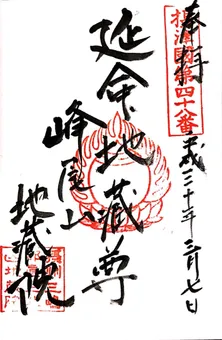 奉拝
平成三十年三月七日
摂津国第四十八番
延命地蔵尊
峰尾山
地蔵院